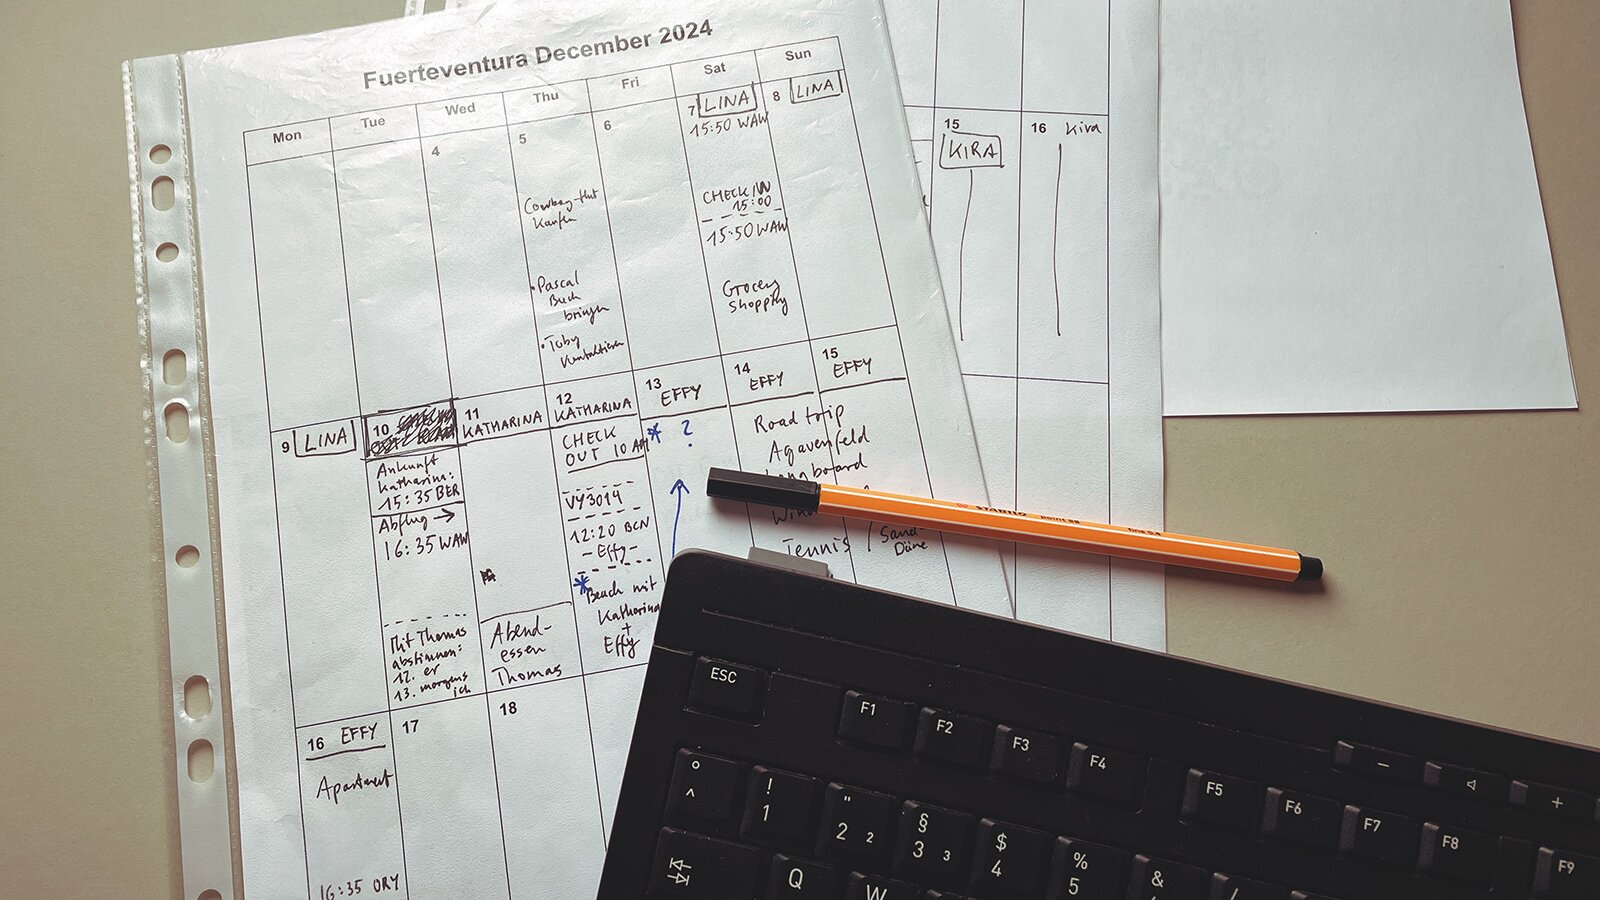 Fuerteventura December 2024
Mon Tue Wed Thu Fri Sat Sun
4
5
Cowboy-Hut
kaufen
• Pascal
Buch
bringen
• Toby
kontaktieren
6
7 LINA
15:50 WAW
CHECK IN
15:00
15:50 WAW
Grocery
Shopping
8 LINA
9 LINA
10
Ankunft
Katharina:
15:35 BER
Abflug →
16:35 WAW
Mit Thomas
abstimmen:
12. er
13. morgens
ich
11
KATHARINA
Abend-
essen
Thomas
12
KATHARINA
CHECK
OUT 10 AM
VY3014
12:20 BCN
- Effy -
* Beach mit
Katharina
+
Effy
13
EFFY
* ?
14
EFFY
Road trip
Agavenfeld
Longboard
Tennis / Sand-
Düne
15
EFFY
16 EFFY
Apartment
16:35 ORY
17
18
15
KIRA
16 Kira
STABILO point 88 fine 0.4
ESC
F1 F2 F3 F4 F5 F6 F7 F8 F9
° ^
! 1
" 2 2
§ 3 3
$ 4
% 5
&
/
Q W